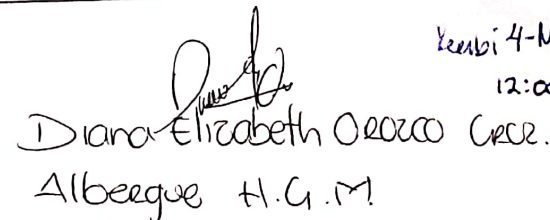 Recibi 4-M
12:00
Diana Elizabeth Orozco Cruz.
Albergue H.G.M